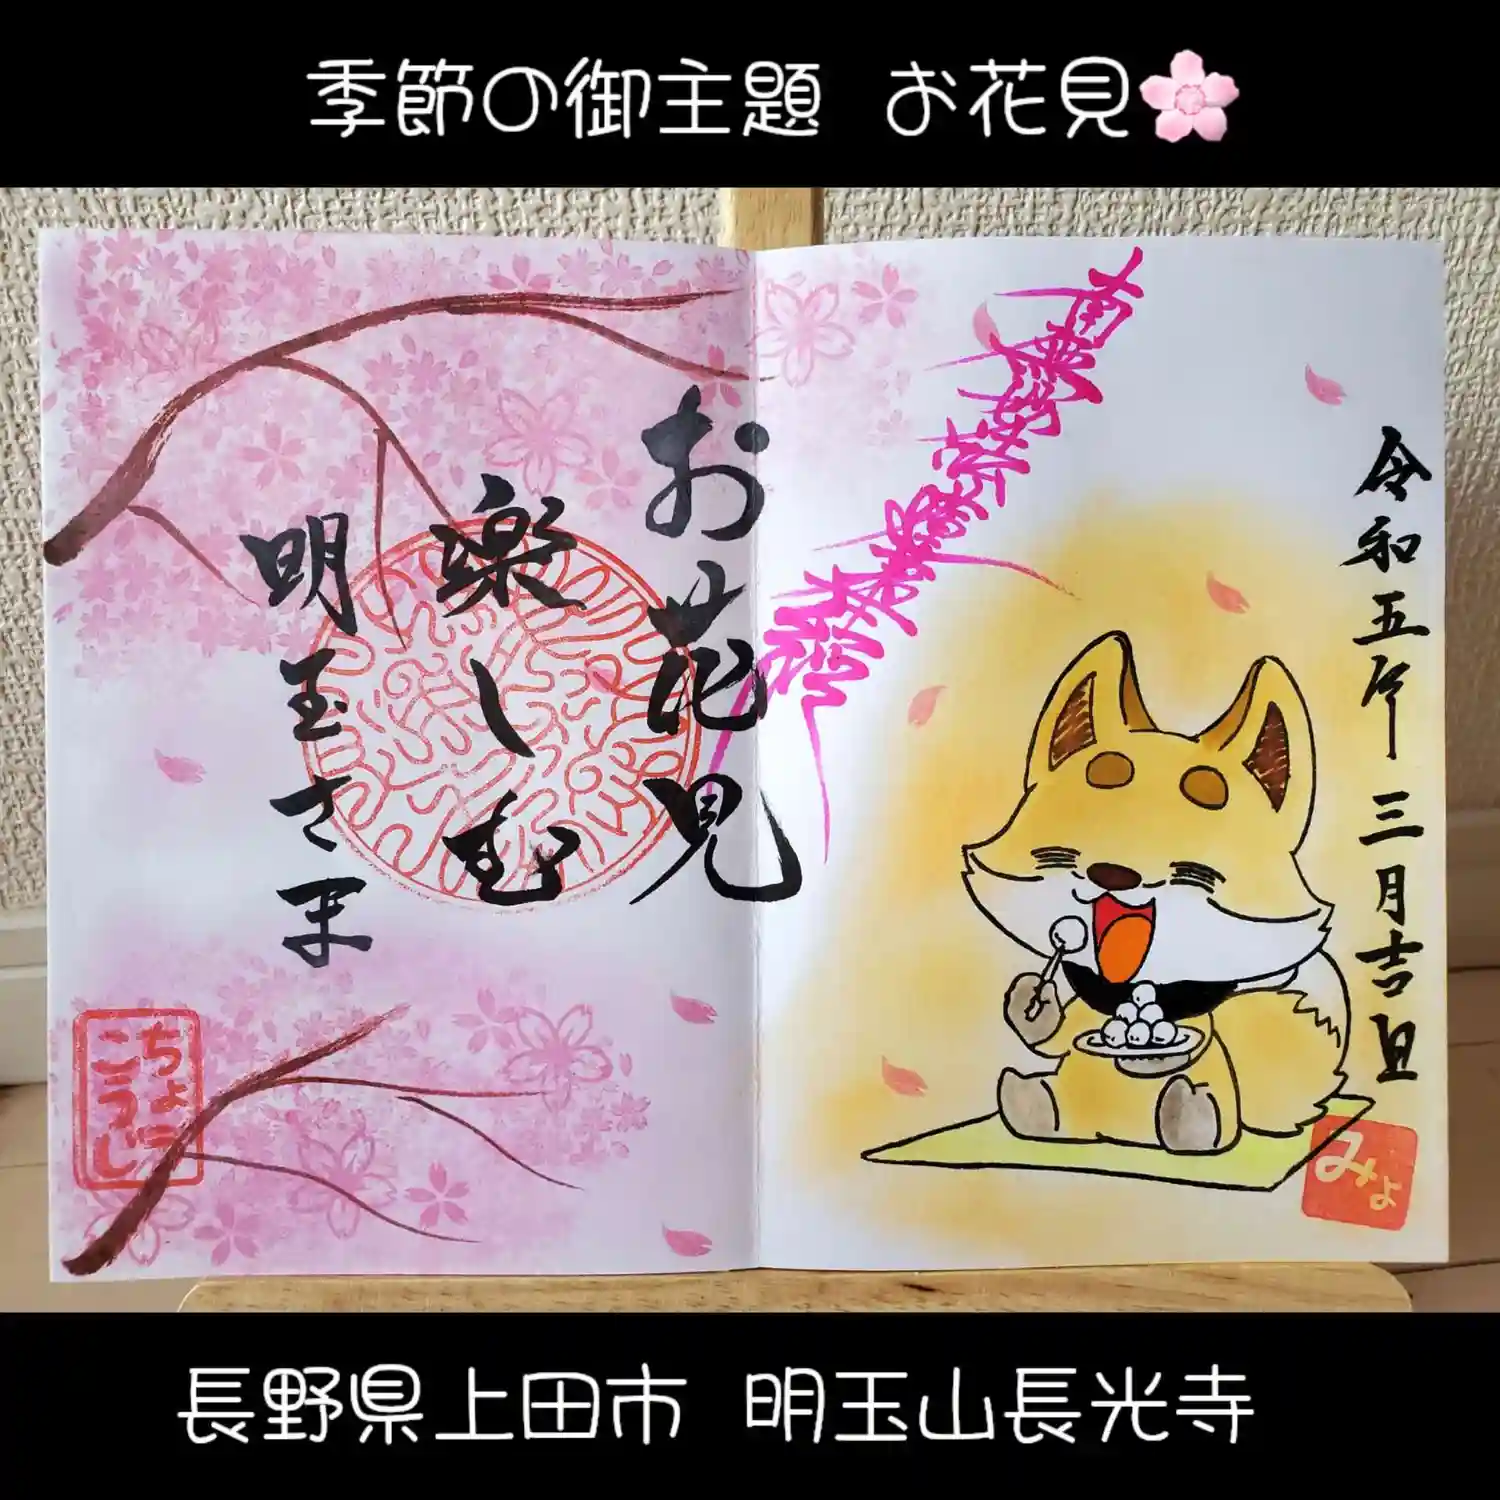 季節の御主題 お花見🌸
令和五年 三月吉旦
南無妙法蓮華経
お花見
楽しむ
明玉さま
ちょう
こうじ
みょ
長野県上田市 明玉山長光寺